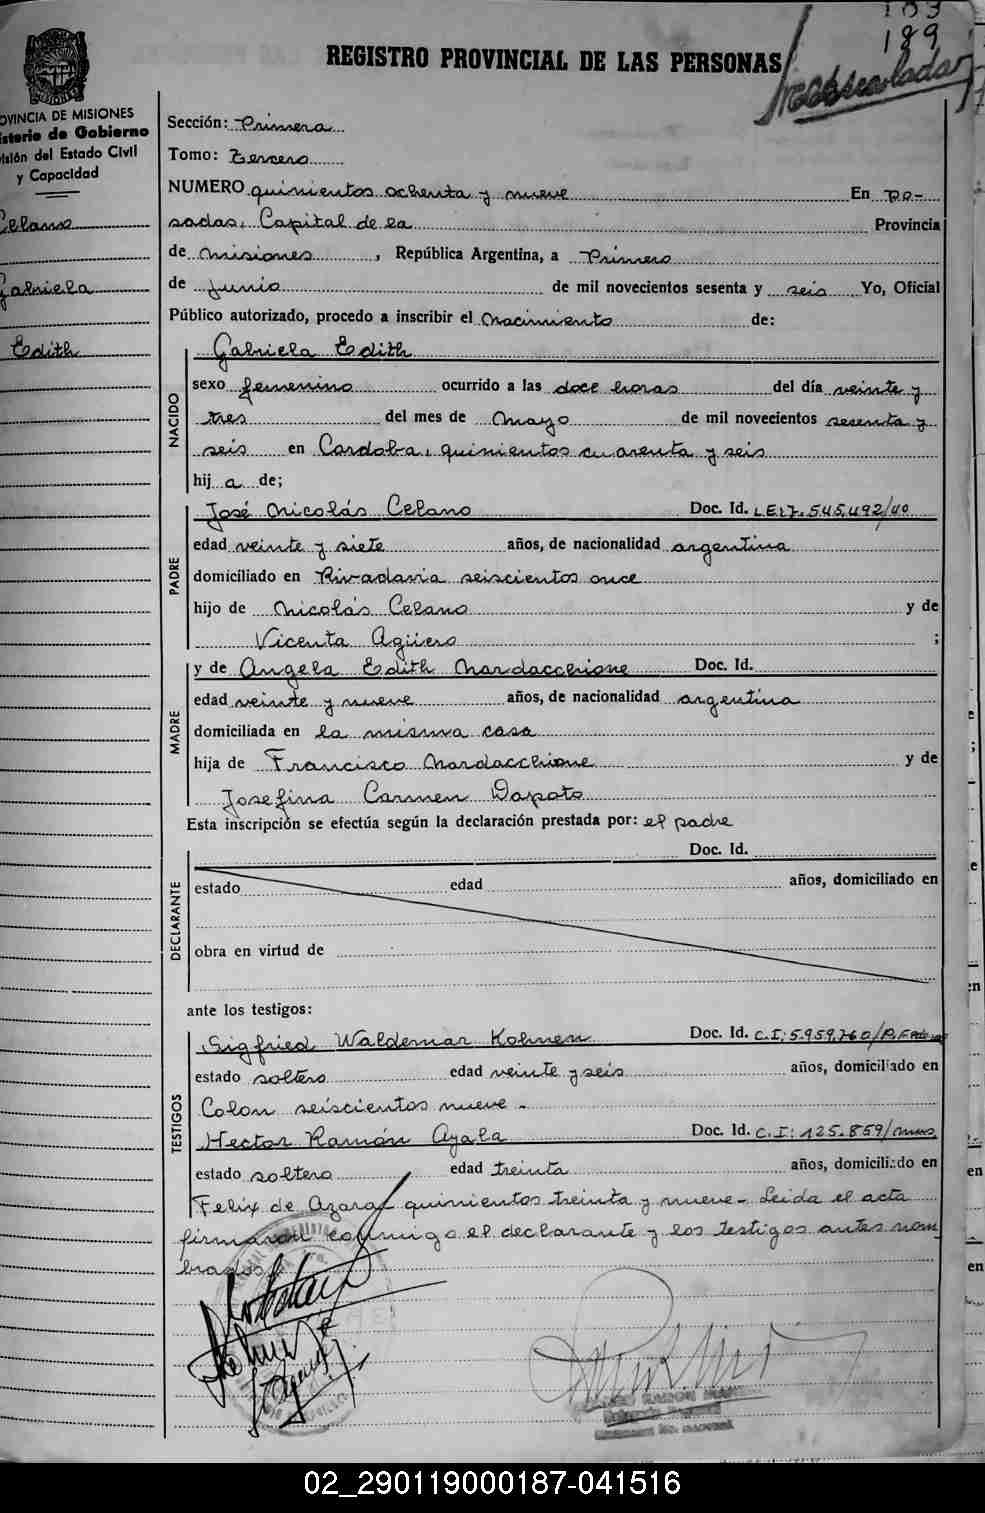 REGISTRO PROVINCIAL DE LAS PERSONAS
103
189
OVINCIA DE MISIONES
isterio de Gobierno
visión del Estado Civil
y Capacidad
Celano
Gabriela
Edith
Sección: Primera
Tomo: Tercero
NUMERO quinientos ochenta y nueve En Po-
sadas, Capital de la Provincia
de Misiones, República Argentina, a Primero
de Junio de mil novecientos sesenta y seis Yo, Oficial
Público autorizado, procedo a inscribir el Nacimiento de:
NACIDO
Gabriela Edith
sexo femenino ocurrido a las doce horas del día veinte y
tres del mes de Mayo de mil novecientos sesenta y
seis en Cordoba, quinientos cuarenta y seis
hij a de;
PADRE
José Nicolás Celano Doc. Id. L.E:7.545.492/40
edad veinte y siete años, de nacionalidad argentina
domiciliado en Rivadavia seiscientos once
hijo de Nicolás Celano y de
Vicenta Agüero ;
MADRE
y de Angela Edith Nardacchione Doc. Id.
edad veinte y nueve años, de nacionalidad argentina
domiciliada en la misma casa
hija de Francisco Nardacchione y de
Josefina Carmen Dapoto
Esta inscripción se efectúa según la declaración prestada por: el padre
DECLARANTE
Doc. Id.
estado edad años, domiciliado en
obra en virtud de
ante los testigos:
TESTIGOS
Sigfried Waldemar Kohnen Doc. Id. C.I:5.959.760/P.Federal
estado soltero edad veinte y seis años, domiciliado en
Colon seiscientos nueve -
Hector Ramón Ayala Doc. Id. C.I:125.859/mnes
estado soltero edad treinta años, domiciliado en
Felix de Azara quinientos treinta y nueve- Leida el acta
firmaron conmigo el declarante y los testigos antes nom
brados
02_290119000187-041516